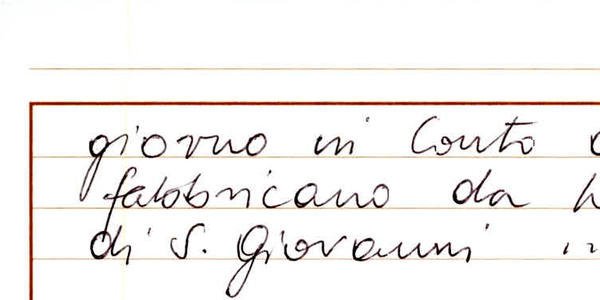 giorno in Conto
fabbricano da
di S. Giovanni